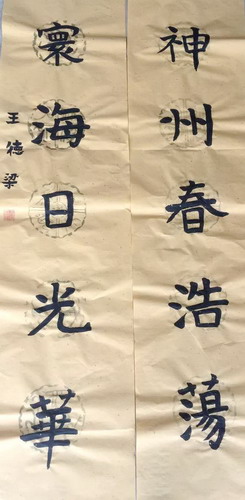 神州春浩蕩
寰海日光華
王德梁